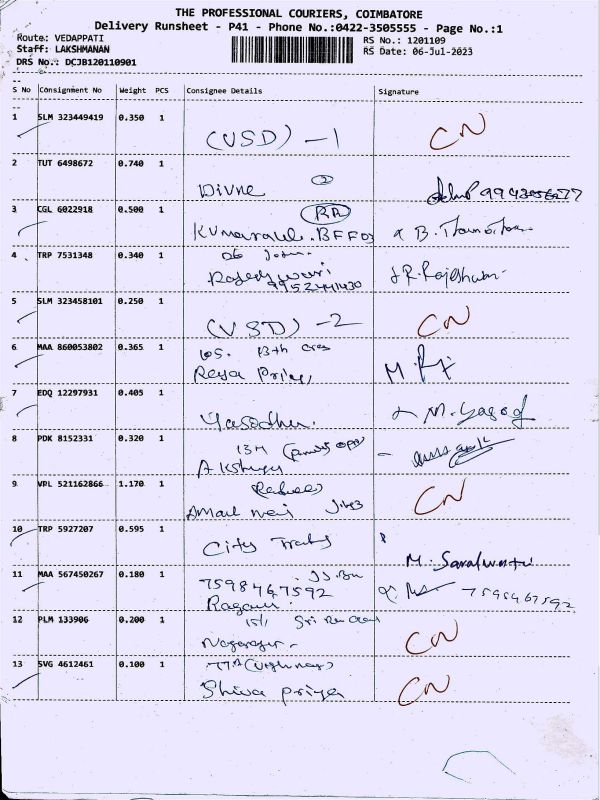 THE PROFESSIONAL COURIERS, COIMBATORE
Delivery Runsheet - P41 - Phone No.:0422-3505555 - Page No.:1
Route: VEDAPPATI
RS No.: 1201109
Staff: LAKSHMANAN
RS Date: 06-Jul-2023
DRS No.: DCJB120110901
S No Consignment No Weight PCS Consignee Details Signature
1 SLM 323449419 0.350 1
(USD) - 1 CN
2 TUT 6498672 0.740 1
Divne 2
3 CGL 6022918 0.500 1 RR
4 TRP 7531348 0.340 1
9952441430 R. Rajeshwari
5 SLM 323458101 0.250 1
(USD) - 2 CN
6 MAA 860053802 0.365 1 105. 13th Cros
Reya Priya M
7 EDQ 12297931 0.405 1
Yasodha. M.
8 PDK 8152331 0.320 1
9 VPL 521162866 1.170 1
CN
10 TRP 5927207 0.595 1
City M. Saralwati
11 MAA 567450267 0.180 1
7598467592 7598467592
12 PLM 133906 0.200 1
Nagaraj CN
13 SVG 4612461 0.100 1 77A
Shiva Priya CN